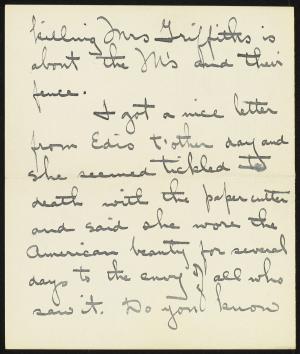 killing Mrs Griffiths is
about the M's and their
fence.
I got a nice letter
from Edis t'other day and
she seemed tickled to
death with the paper cutter
and said she wore the
American beauty for several
days to the envy of all who
saw it. Do you know